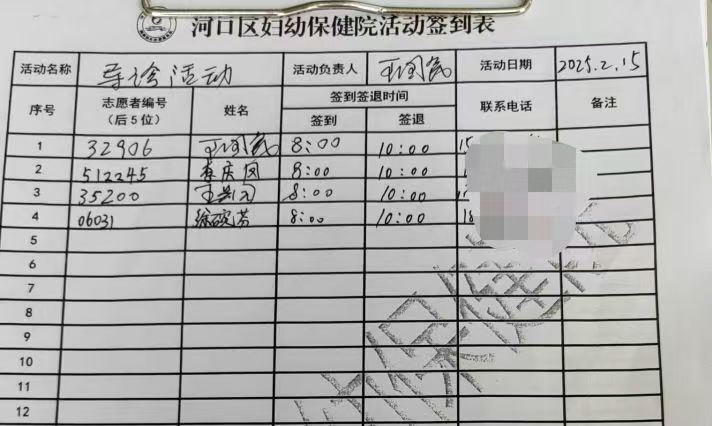 河口区妇幼保健院活动签到表
活动名称 导诊活动 活动负责人 王国民 活动日期 2025.2.15
序号 志愿者编号（后5位） 姓名 签到签退时间 联系电话 备注
签到 签退
1 32906 王国民 8:00 10:00 15
2 512245 庆凤 8:00 10:00
3 35200 8:00 10:00
4 06031 8:00 10:00 18
5
6
7
8
9
10
11
12